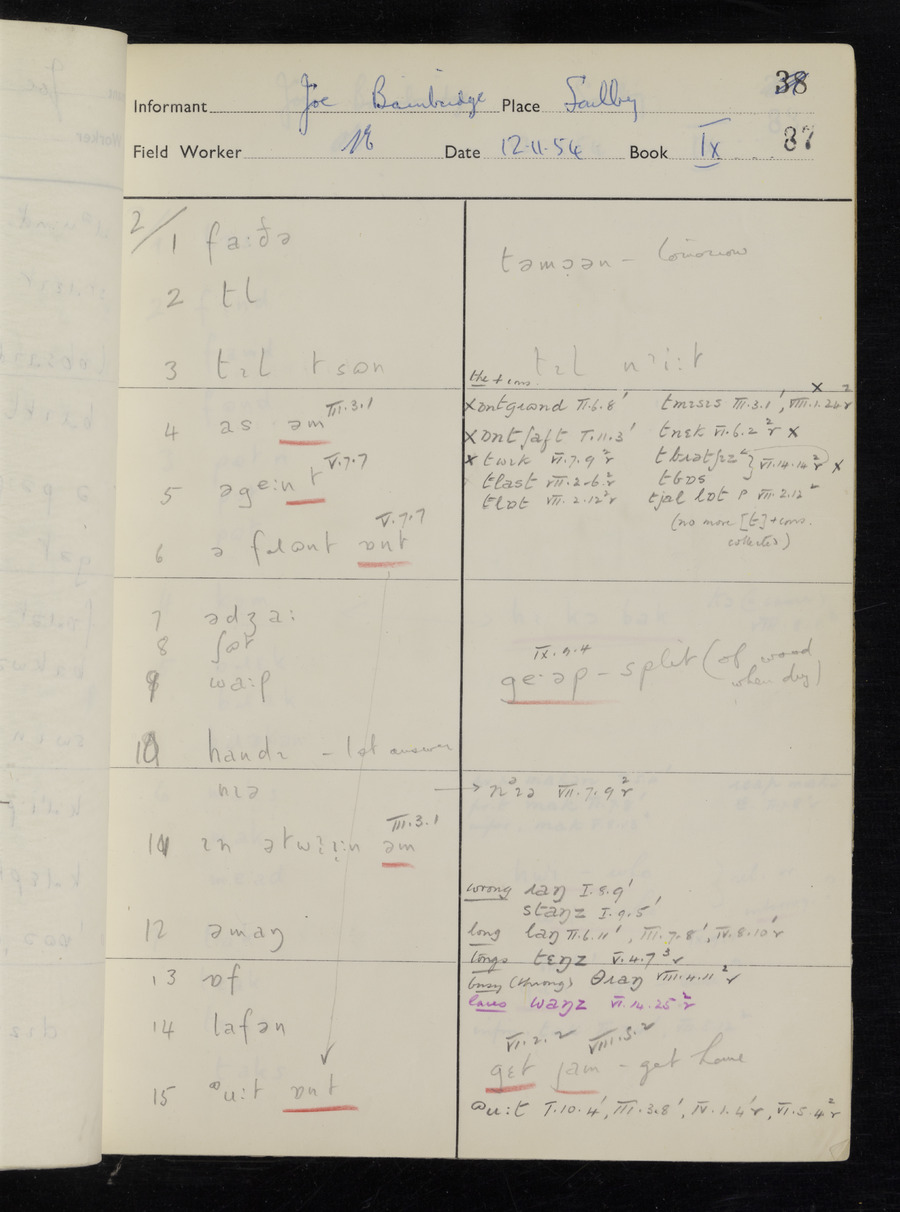 38
Informant Joe Bainbridge Place Soulby
37
Field Worker Date 12.11.54 Book IX
2/
1 fa:ðə
təmɔ̣ən – tomorrow
2 tl
3 tɪl t sɷn
tɪl nɪi:t
the + cons.
III.3.1
4 as əm
V.7.7
5 əge:n t
V.7.7
6 ə fɷnt ɷnt
x ɒntgrɷnd II.6.8' tmɪsɪs III.3.1', VIII.1.24r x 2
x ɒnt ʃaft I.11.3' tnɛk VI.6.2 2r x
x twɪk VI.7.9 2r
tbɷs VI.14.14 2r x
tlast VII.2.6 2r
tlɒt VII.2.12 2r tjal lɒt P VII.2.12 2
(no more [t] + cons.
collected)
7 ədʒa:
8 ʃɒt
9 wa:p
IX.2.4
ge·əp – split (of wood
when dry)
10 handɪ – 1st answer
nɪə → nɪə VII.7.9 2r
III.3.1
11 ɪn ətwi:n əm
wrong raŋ I.8.9'
staŋz I.9.5'
12 əmaŋ
long laŋ II.6.11', III.7.8', IV.8.10'r
tongs tɛŋz V.4.7 3r
13 ɒf
busy (throng) θraŋ VIII.4.11 2r
waŋz VI.14.25 2r
14 lafən
VI.2.2 VIII.5.2
gɛt jam – get home
15 ɷu:t ɷnt
ɷu:t I.10.4', III.3.8', IV.1.4'r, VI.5.4 2r